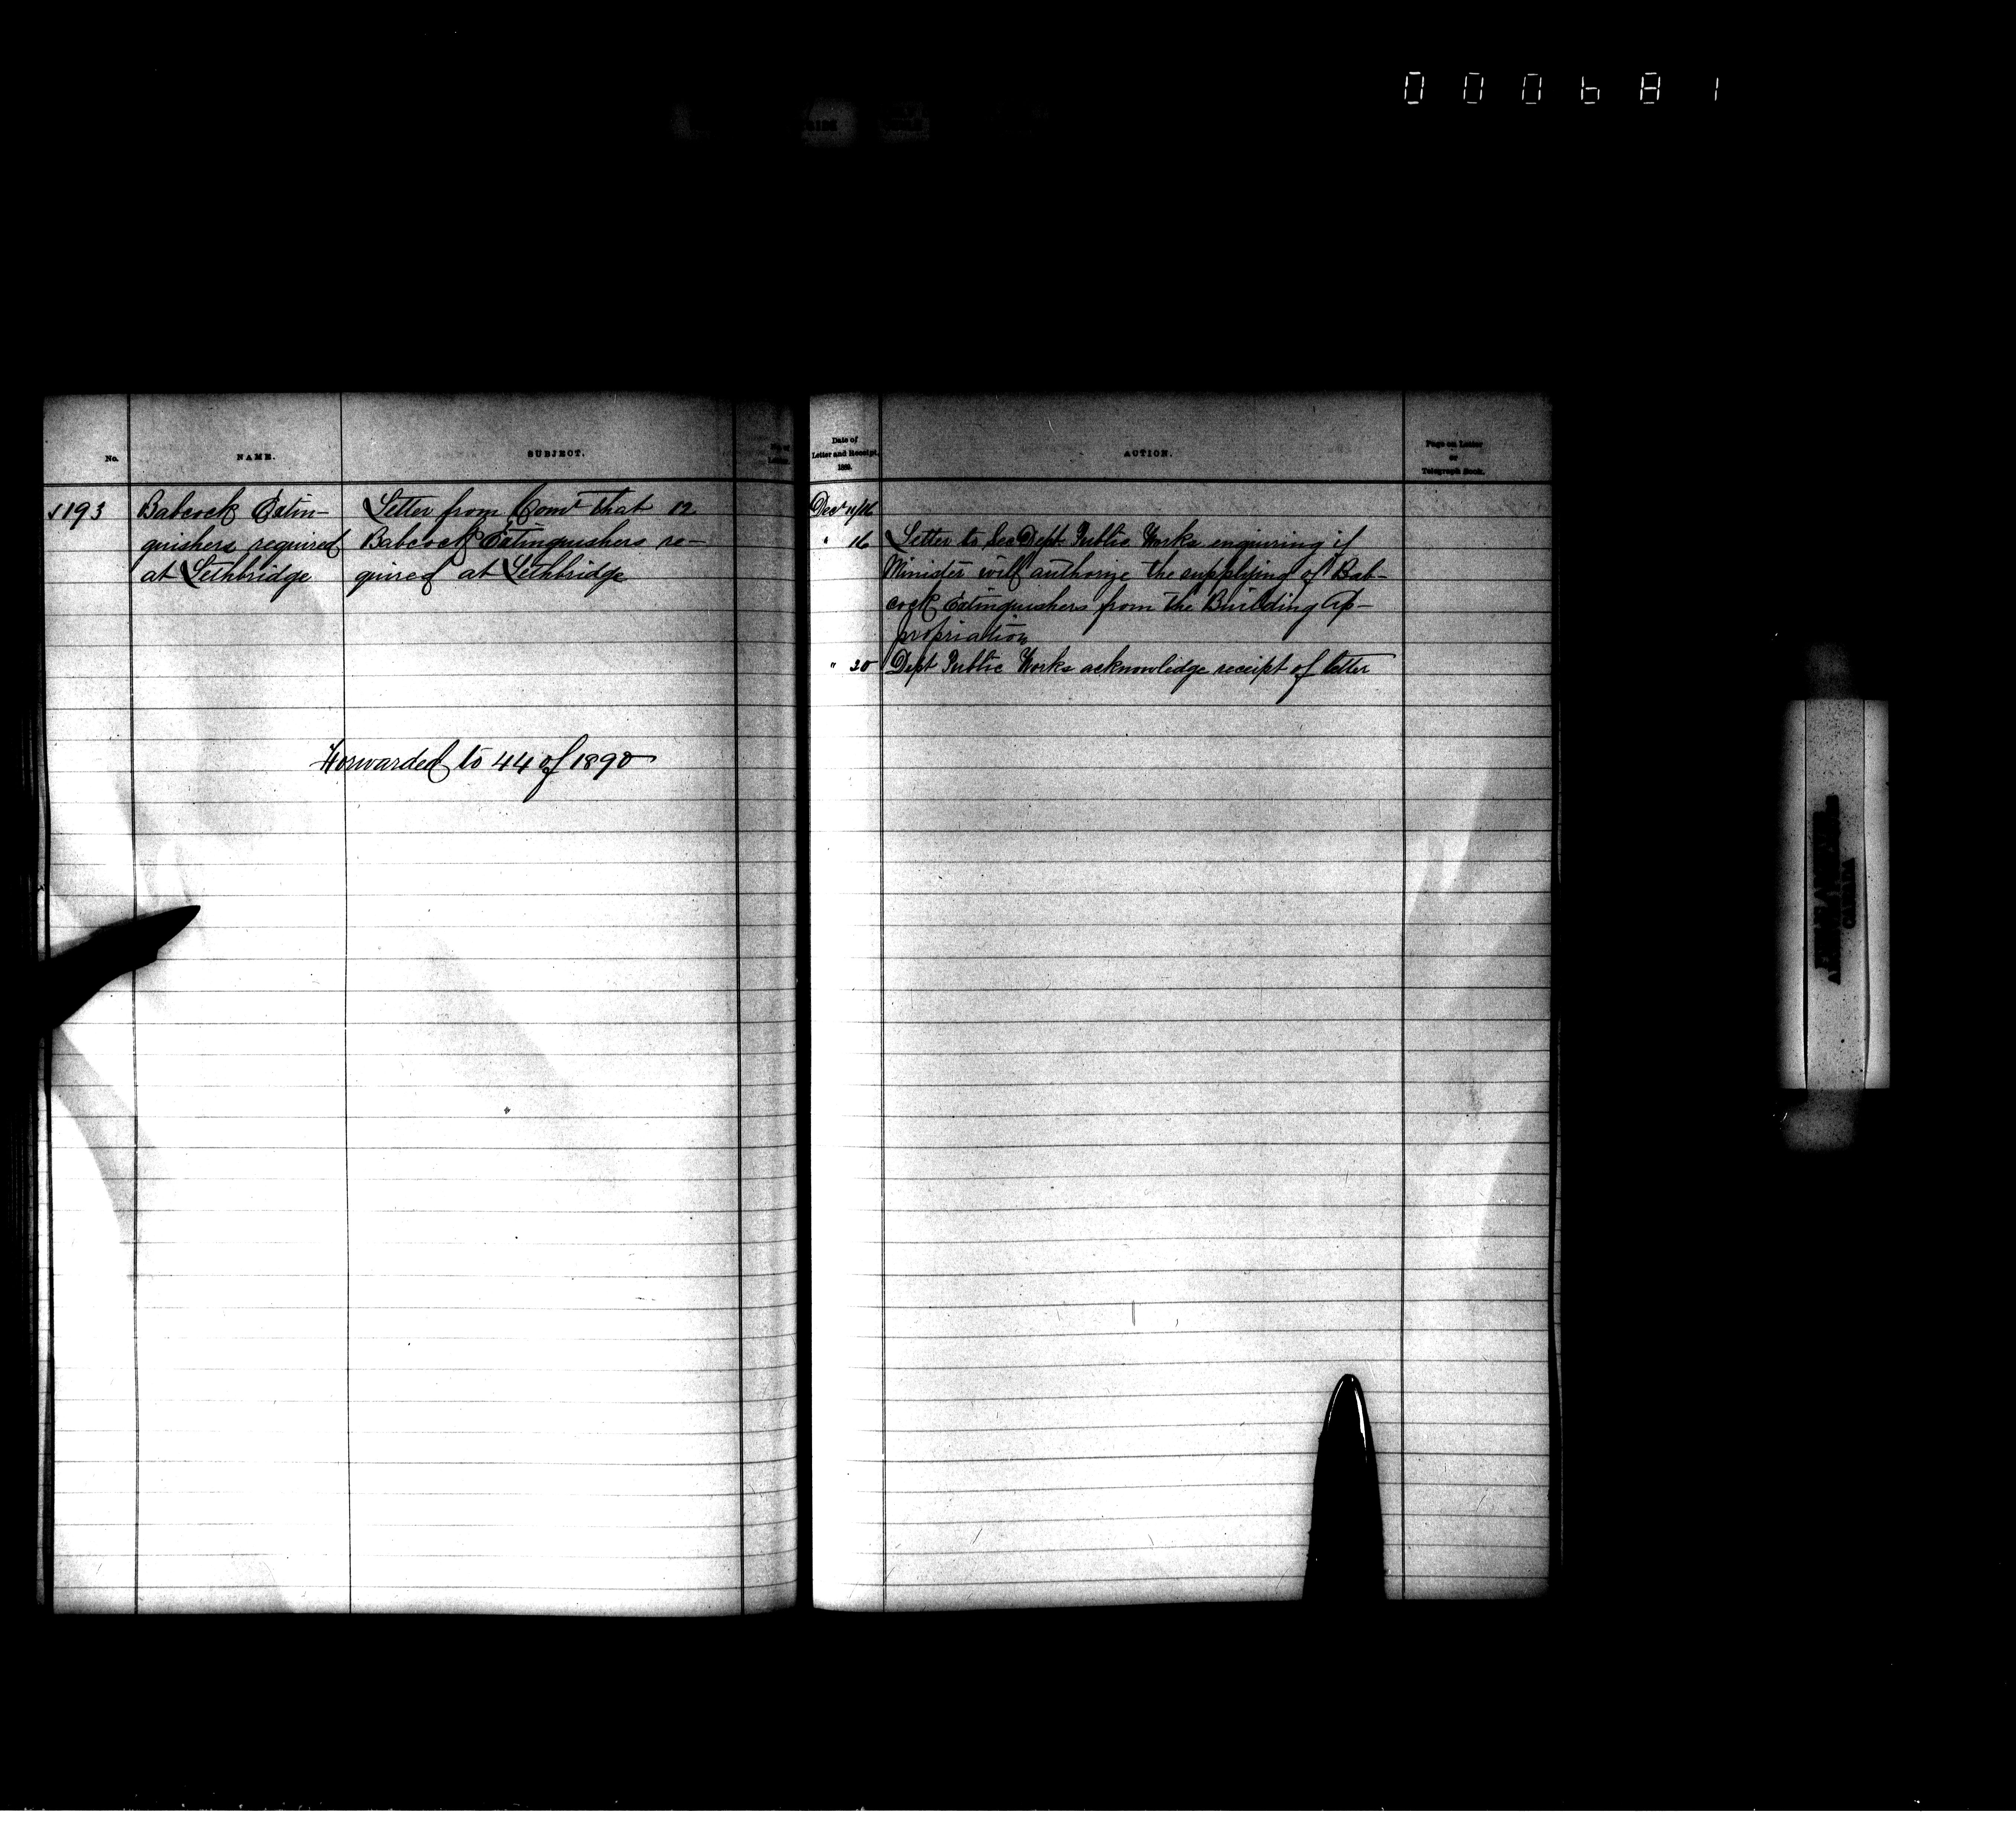 000681
No.
NAME.
SUBJECT.
No. of
Letter.
1193
Babcock Extin-
guishers required
at Lethbridge
Letter from Comr that 12
Babcock Extinguishers re-
quired at Lethbridge
Forwarded to 44 of 1890
Date of
Letter and Receipt,
1889.
ACTION.
Page on Letter
or
Telegraph Book.
Decr 11/16
" 16 Letter to Sec Dept Public Works enquiring if
Minister will authorize the supplying of Bab-
cock Extinguishers from the Building Ap-
propriation
" 20 Dept Public Works acknowledge receipt of letter
CANADA